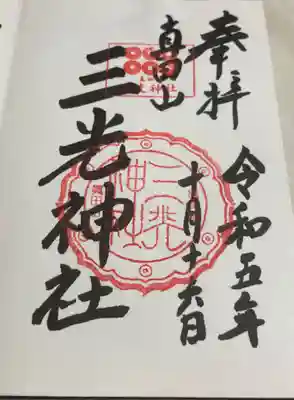 奉拝
令和五年
十月十六日
真田山
三光神社